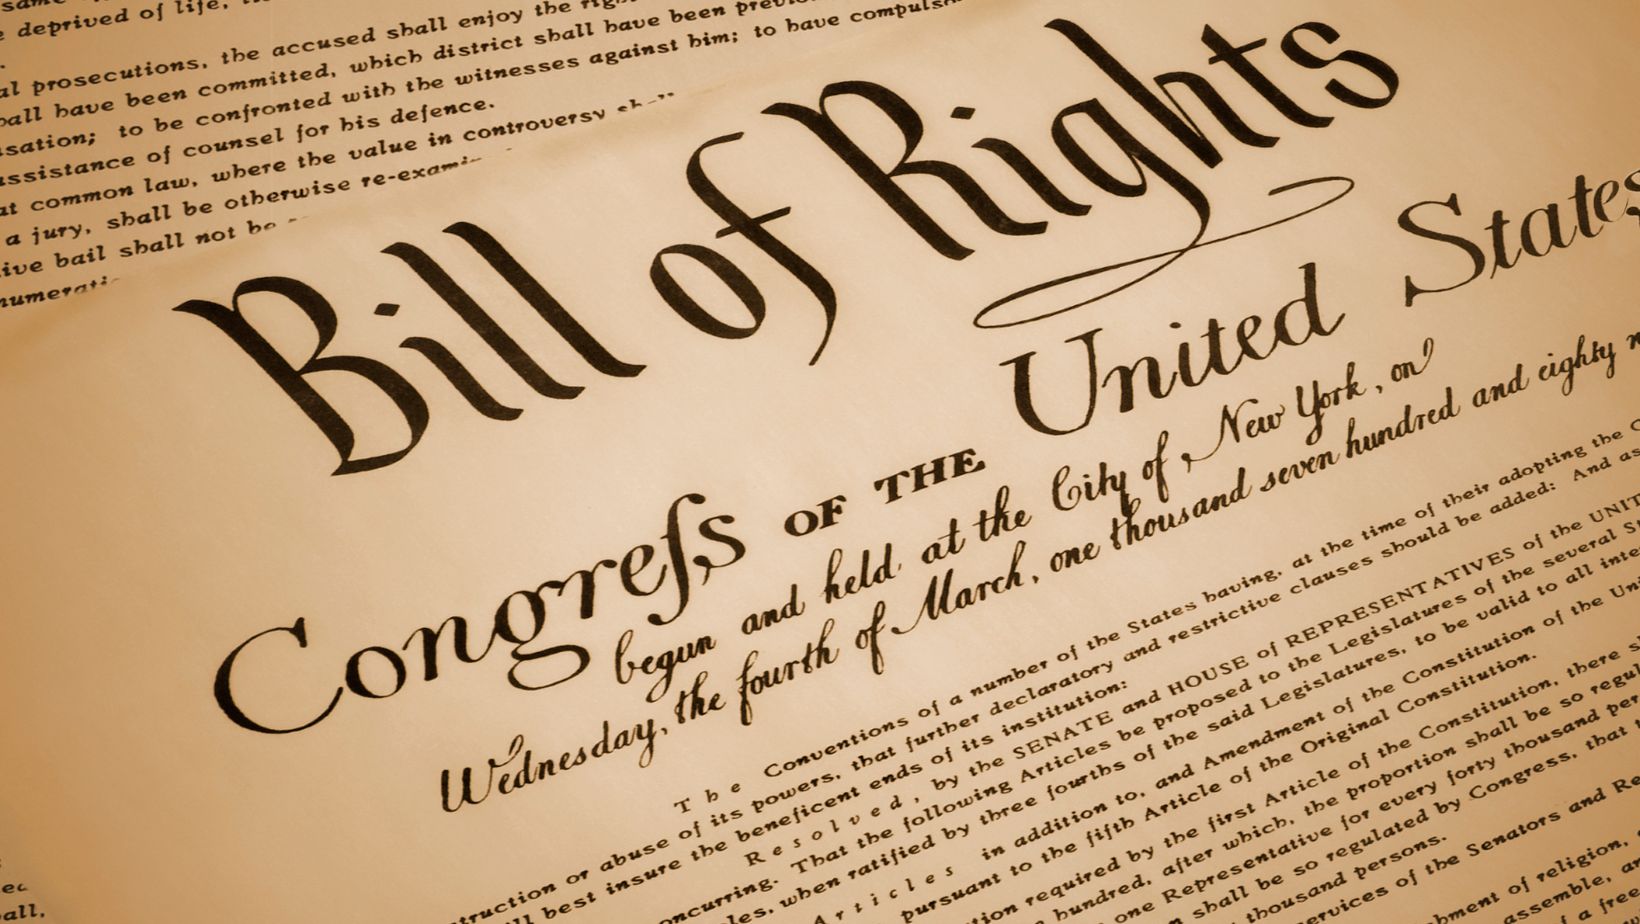 same
e deprived of life,
al prosecutions, the accused shall enjoy the
hall have been committed, which district shall have been
sation; to be confronted with the witnesses against him; to have
assistance of counsel for his defence.
at common law, where the value in controversy
a jury, shall be otherwise
ive bail shall not be
Bill of Rights
Congreſs OF THE United States
begun and held at the City of New York, on
Wednesday, the fourth of March, one thousand seven hundred and eighty
The Conventions of a number of the States having, at the time of their adopting the
truction or abuse of its powers, that further declaratory and restrictive clauses should be added: And as
ll best insure the beneficent ends of its institution:
Resolved, by the SENATE and HOUSE of REPRESENTATIVES of the UNIT
oncurring. That the following Articles be proposed to the Legislatures of the several
les, when ratified by three fourths of the said Legislatures, to be valid to all
Articles in addition to, and Amendment of the Constitution of the
pursuant to the fifth Article of the Original Constitution.
tion required by the first Article of the Constitution, there
hundred, after which, the proportion shall be so
one Representative for every forty thousand
shall be so regulated by Congress, that
thousand persons.
ervices of the Senators and
hment of religion,
assemble,